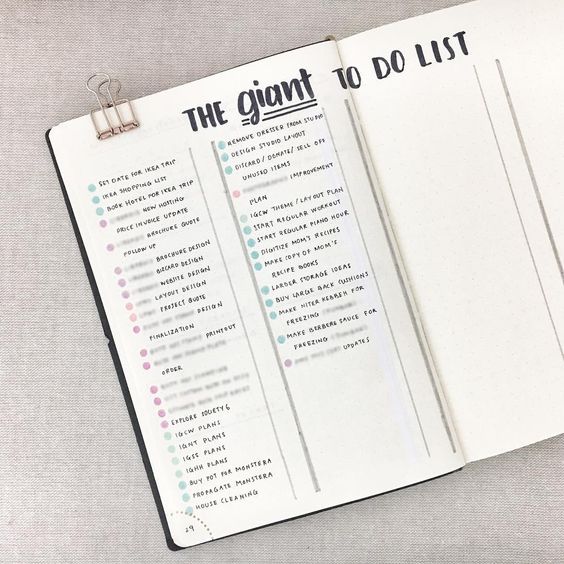 THE giant TO DO LIST
SET DATE FOR IKEA TRIP
IKEA SHOPPING LIST
BOOK HOTEL FOR IKEA TRIP
NEW HOSTING
PRICE INVOICE UPDATE
BROCHURE QUOTE
FOLLOW UP
BROCHURE DESIGN
BIZCARD DESIGN
WEBSITE DESIGN
LAYOUT DESIGN
PROJECT QUOTE
DESIGN
FINALIZATION
PRINTOUT
ORDER
EXPLORE SOCIETY6
IGCW PLANS
IGNT PLANS
IGSS PLANS
IGHH PLANS
BUY POT FOR MONSTERA
PROPAGATE MONSTERA
HOUSE CLEANING
29
REMOVE DRESSER FROM STUDIO
DESIGN STUDIO LAYOUT
DISCARD/DONATE/SELL OFF
UNUSED ITEMS
IMPROVEMENT
PLAN
IGCW THEME/LAYOUT PLAN
START REGULAR WORKOUT
START REGULAR PIANO HOUR
DIGITIZE MOM'S RECIPES
MAKE COPY OF MOM'S
RECIPE BOOKS
LARDER STORAGE IDEAS
BUY LARGE BACK CUSHIONS
MAKE NITER KEBBEH FOR
FREEZING
MAKE BERBERE SAUCE FOR
FREEZING
UPDATES